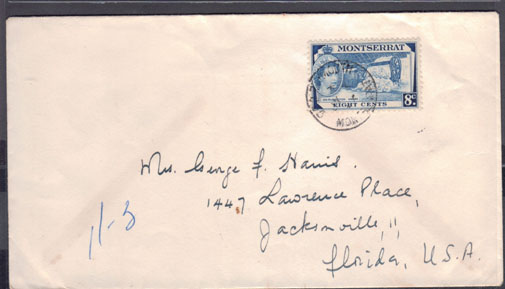 MONTSERRAT
EIGHT CENTS 8c
Mrs. George F. Harris.
1447 Lawrence Place,
Jacksonville, 11
Florida, U.S.A.
11-3